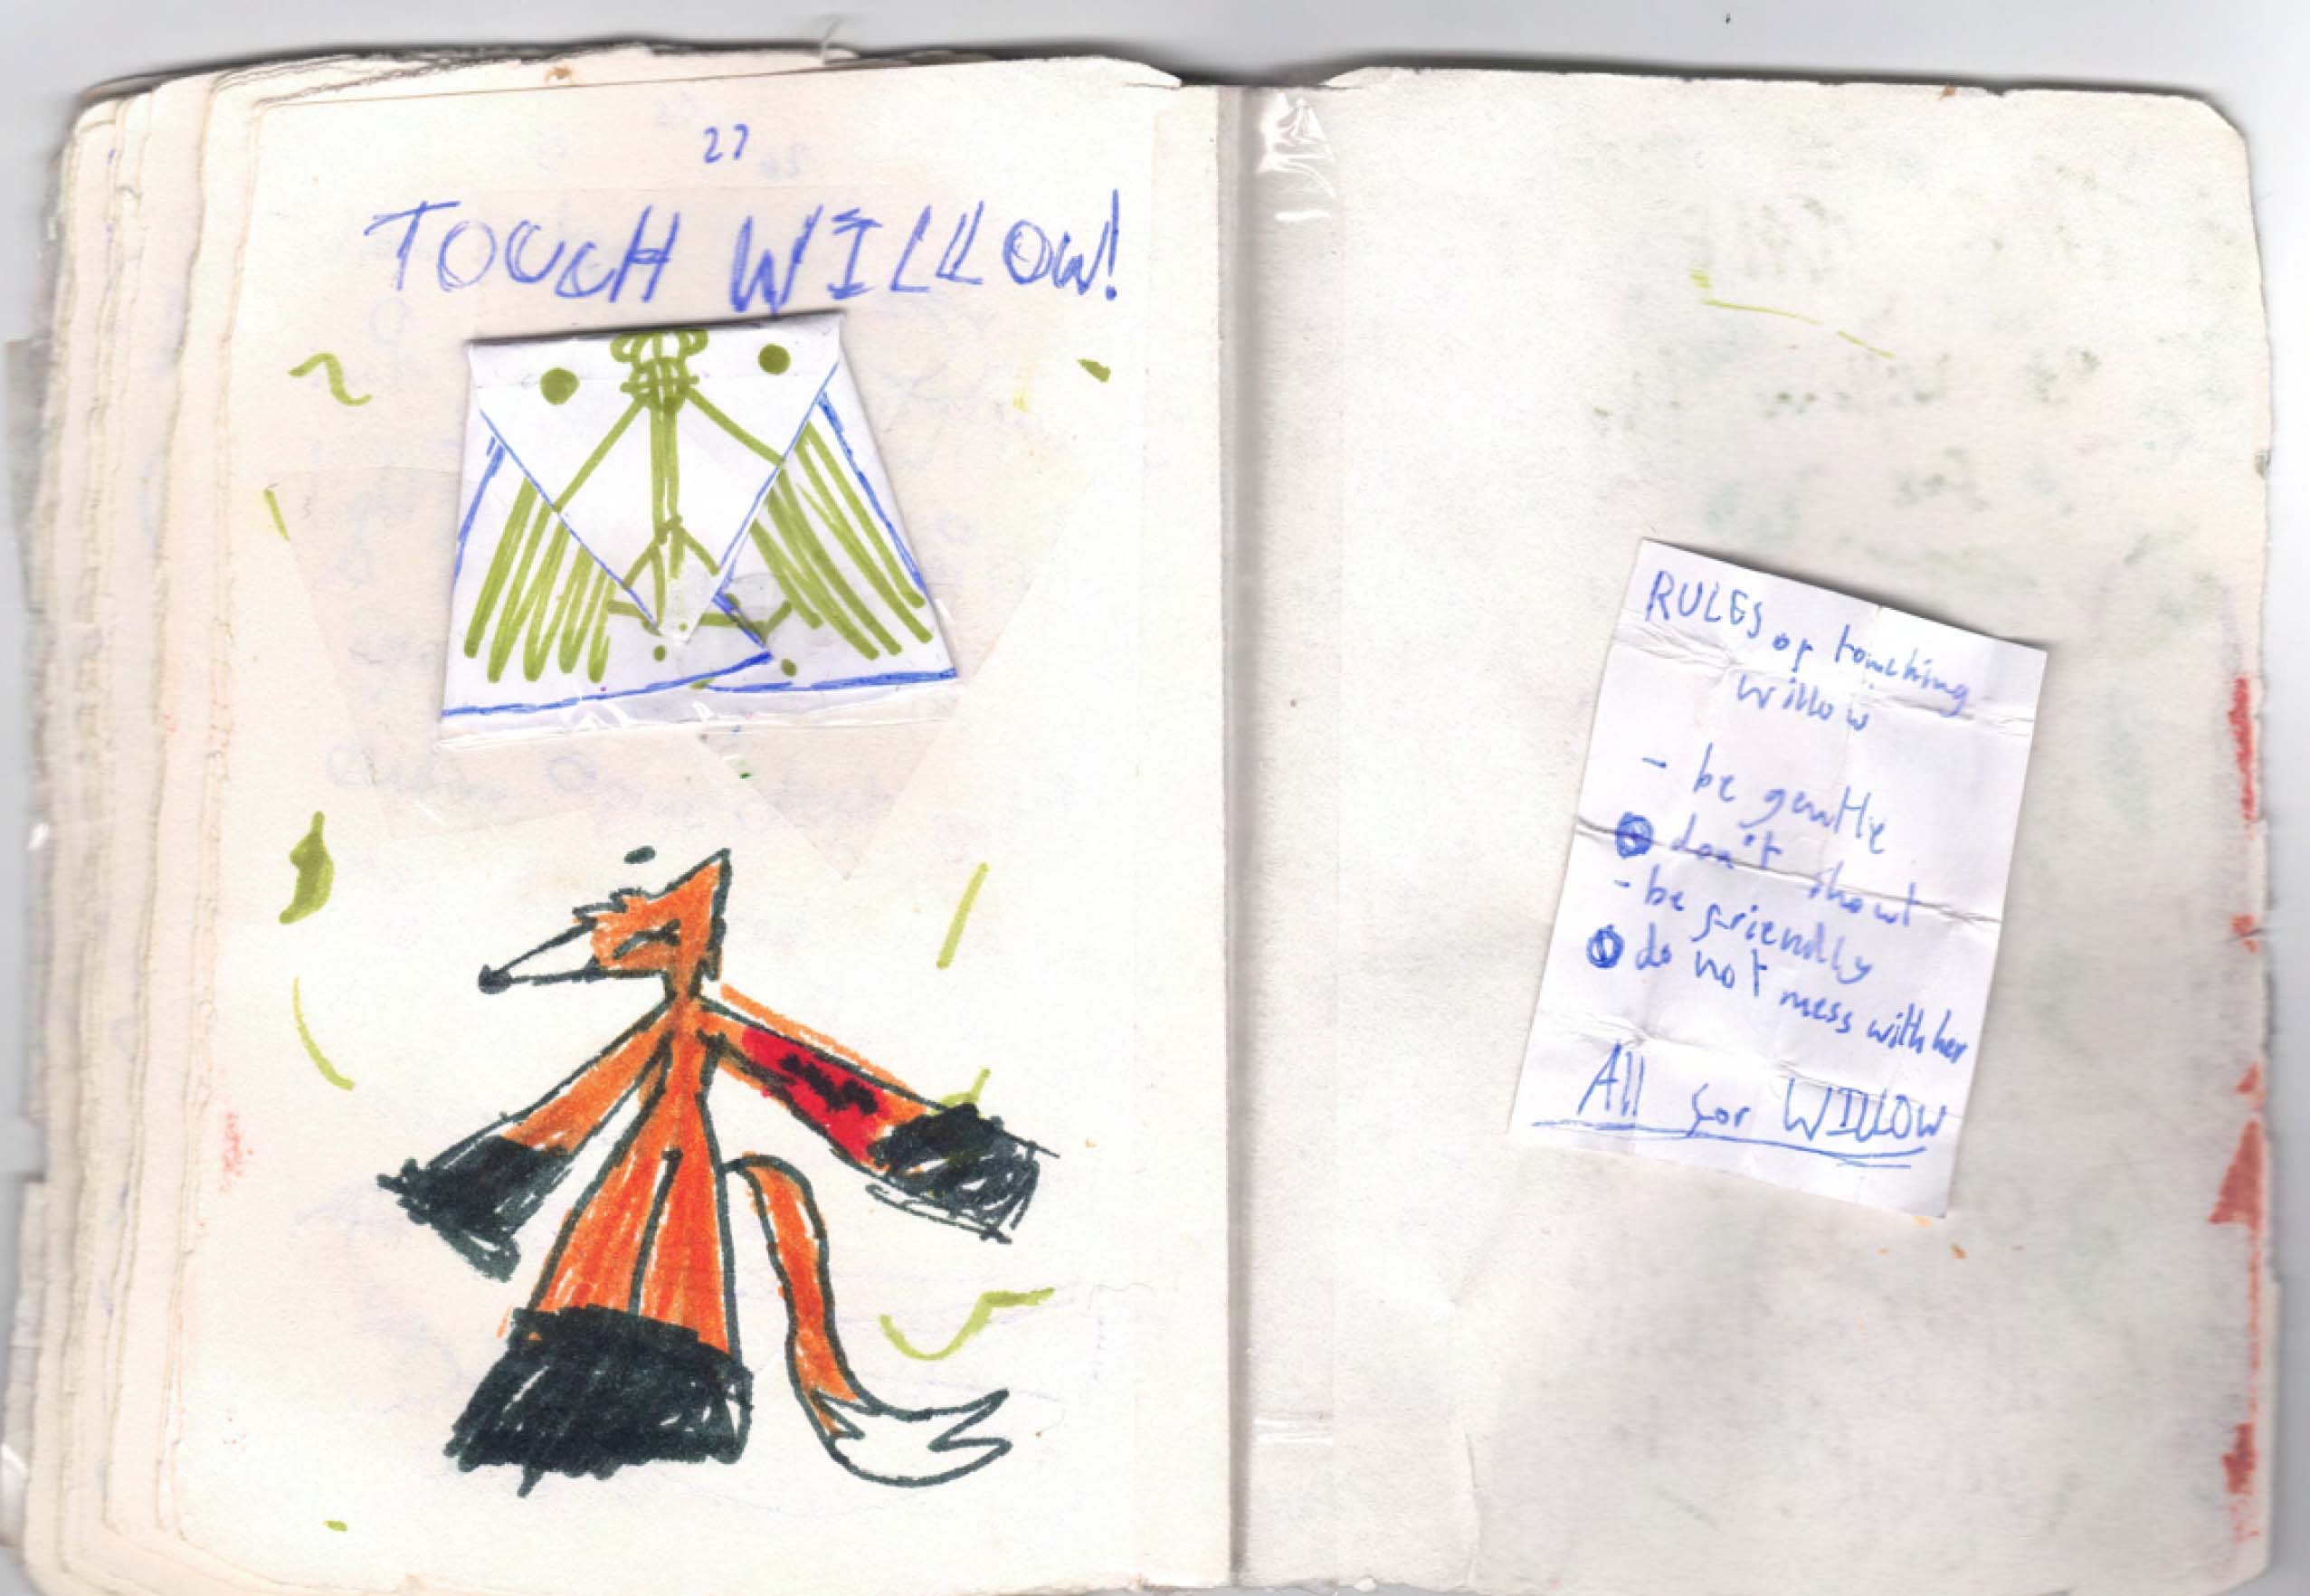 27
TOUCH WILLOW!
RULES of touching
willow
- be gentle
don't shout
- be friendly
do not mess with her
All for WILLOW